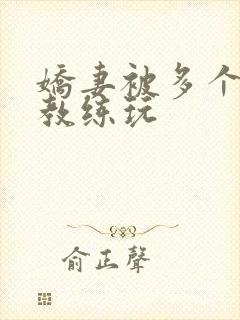 嬌妻被多个
教练玩
俞正聲